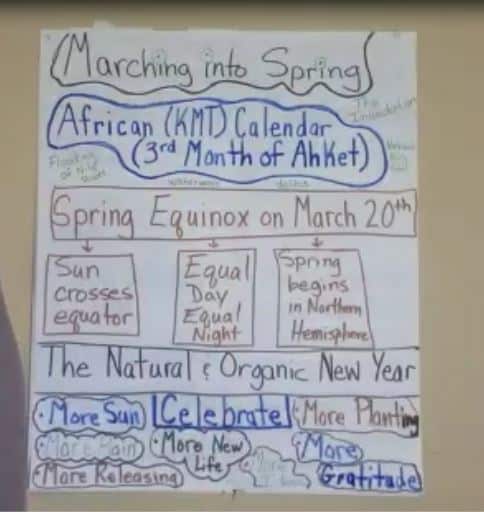 Marching into Spring
African (KMT) Calendar
The
Inundation
(3rd Month of AhKet)
Flooding
of Nile
Spring Equinox on March 20th
Sun
crosses
equator
Equal
Day
Equal
Night
Spring
begins
in Northern
Hemisphere
The Natural & Organic New Year
• More Sun
Celebrate
• More Planting
• More Rain
• More New
Life
• More
Gratitude
• More Releasing